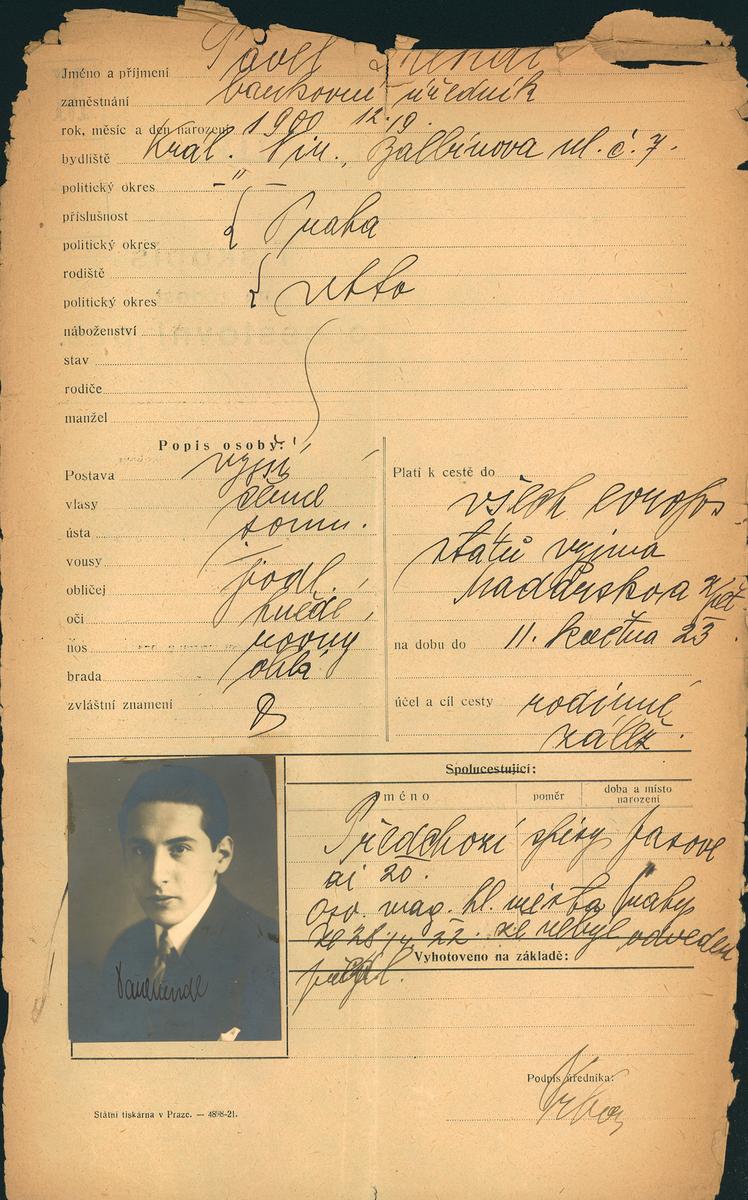 Jméno a příjmení Pavel
zaměstnání bankovní úředník
rok, měsíc a den narození 1900 12.19.
bydliště Král. Vin., Balbínova ul. č. 7.
politický okres -"-
příslušnost
politický okres Praha
rodiště
politický okres
náboženství
stav
rodiče
manžel
Popis osoby:
Postava vyšší
vlasy černé
ústa soum.
vousy —
obličej podl.
oči hnědé
nos rovný
brada oblá
zvláštní znamení
Platí k cestě do
všech evrops
států vyjma
Maďarska a zpět.
na dobu do 11. května 23
účel a cíl cesty rodinné
zálež.
Spolucestující:
jméno poměr doba a místo
narození
Předchozí spisy pasové
ai 20.
Osv. mag. hl. města Prahy
ze 28/4 22. že nebyl odveden
Vyhotoveno na základě:
předl.
Podpis úředníka:
Státní tiskárna v Praze. — 4898-21.